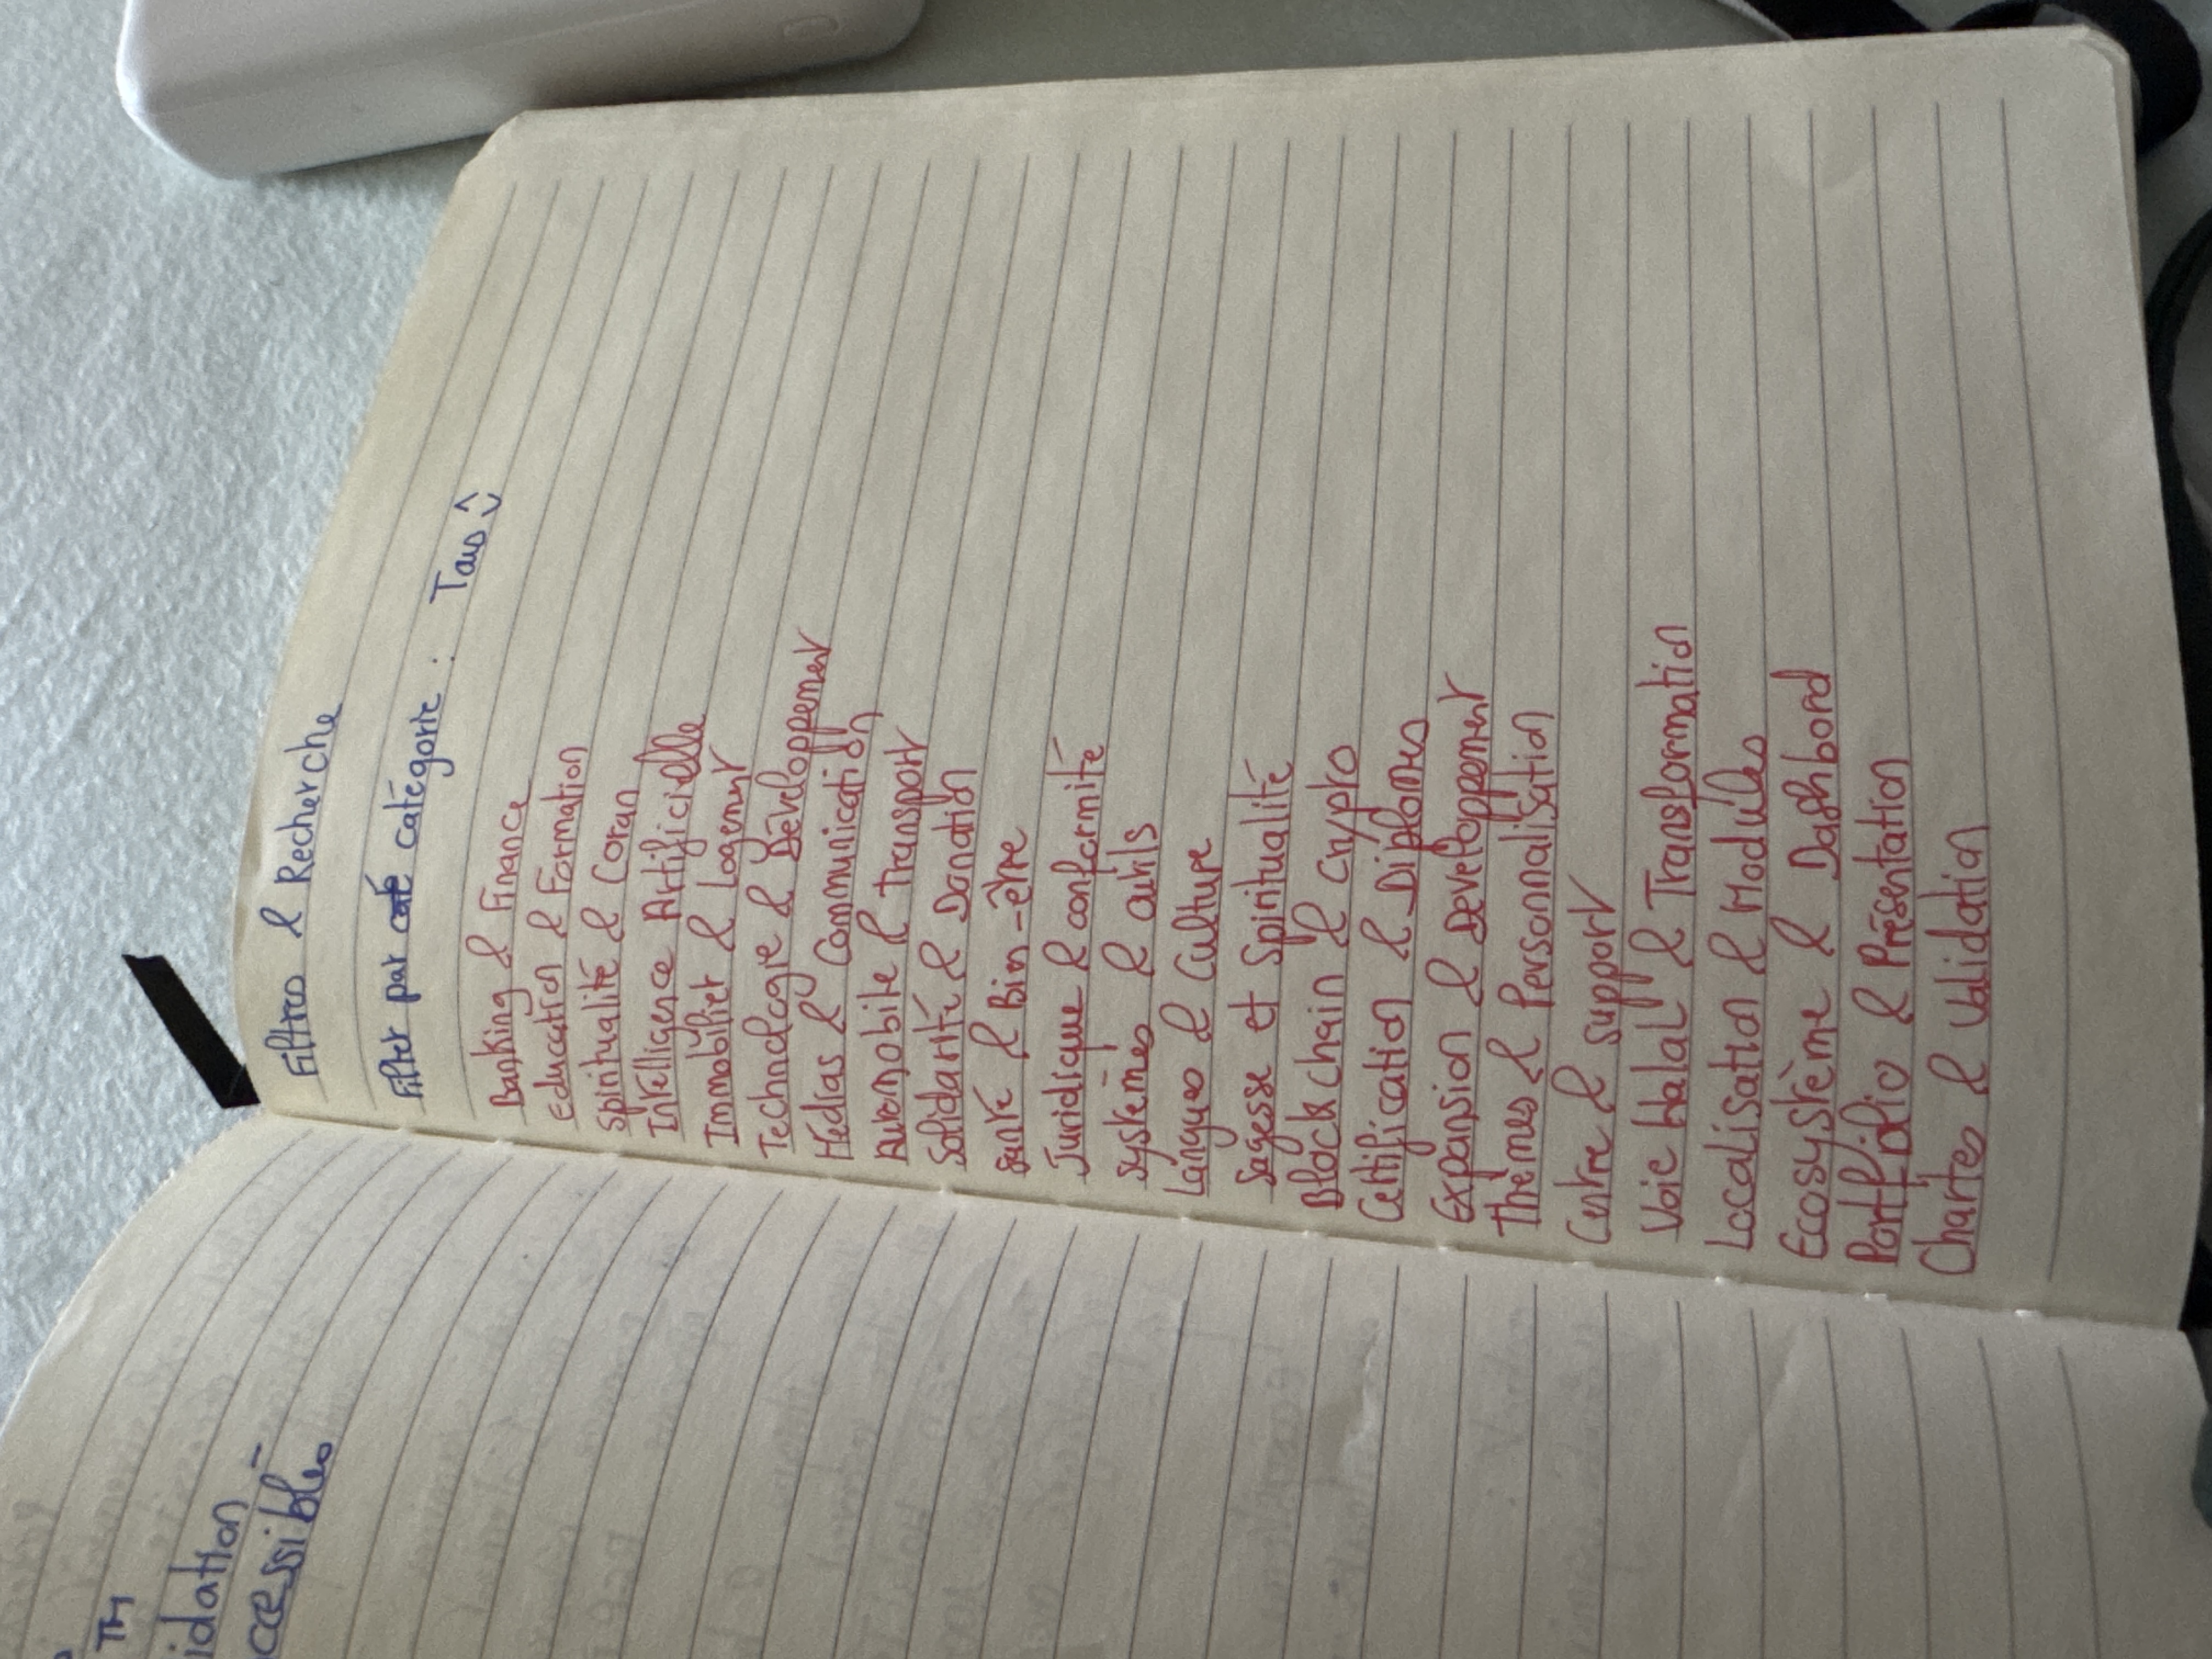 TH
idation -
ccessibles
Filtres & Recherche
Filter par catégorie : Tous
Banking & Finance
Education & Formation
Spiritualité & Coran
Intelligence Artificielle
Immobilier & Logement
Technologie & Développement
Médias & Communication
Automobile & Transport
Solidarité & Donation
Santé & Bien-être
Juridique & conformité
systèmes & outils
Langues & Culture
Sagesse et Spiritualité
Blockchain & Crypto
Certification & Diplomes
Expansion & Developpement
Thèmes & Personnalisation
Centre & support
Voie Halal & Transformation
Localisation & Modules
Ecosystème & Dashbord
Portfolio & Présentation
Chartes & Validation